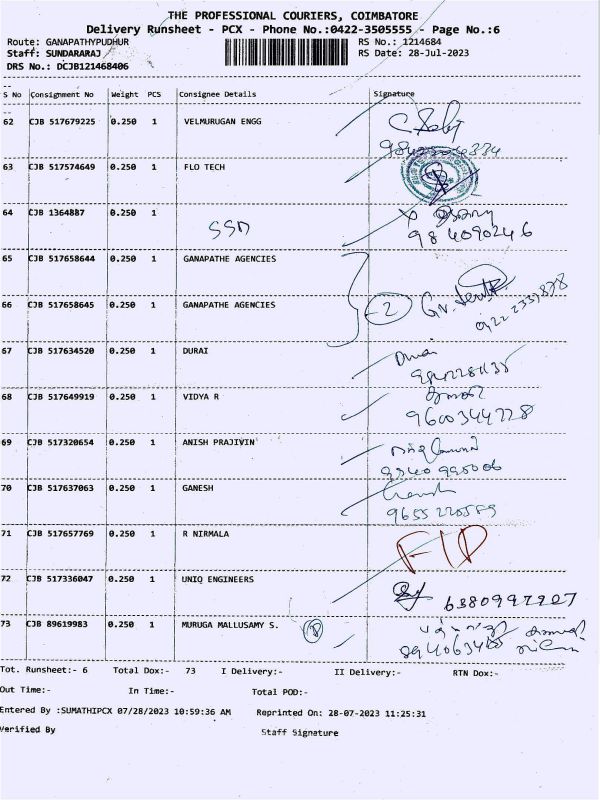 THE PROFESSIONAL COURIERS, COIMBATORE
Delivery Runsheet - PCX - Phone No.:0422-3505555 - Page No.:6
Route: GANAPATHYPUDHUR
RS No.: 1214684
Staff: SUNDARARAJ
RS Date: 28-Jul-2023
DRS No.: DCJB121468406
S No Consignment No Weight PCS Consignee Details Signature
62 CJB 517679225 0.250 1 VELMURUGAN ENGG
63 CJB 517574649 0.250 1 FLO TECH
64 CJB 1364887 0.250 1 SSD
984090246
65 CJB 517658644 0.250 1 GANAPATHE AGENCIES
66 CJB 517658645 0.250 1 GANAPATHE AGENCIES
2
0422 2337878
67 CJB 517634520 0.250 1 DURAI
Durai
68 CJB 517649919 0.250 1 VIDYA R
9600344728
69 CJB 517320654 0.250 1 ANISH PRAJIVIN
70 CJB 517637063 0.250 1 GANESH
Ganesh
71 CJB 517657769 0.250 1 R NIRMALA
72 CJB 517336047 0.250 1 UNIQ ENGINEERS
6380997907
73 CJB 89619983 0.250 1 MURUGA MALLUSAMY S.
Tot. Runsheet:- 6 Total Dox:- 73 I Delivery:- II Delivery:- RTN Dox:-
Out Time:- In Time:- Total POD:-
Entered By :SUMATHIPCX 07/28/2023 10:59:36 AM Reprinted On: 28-07-2023 11:25:31
Verified By Staff Signature